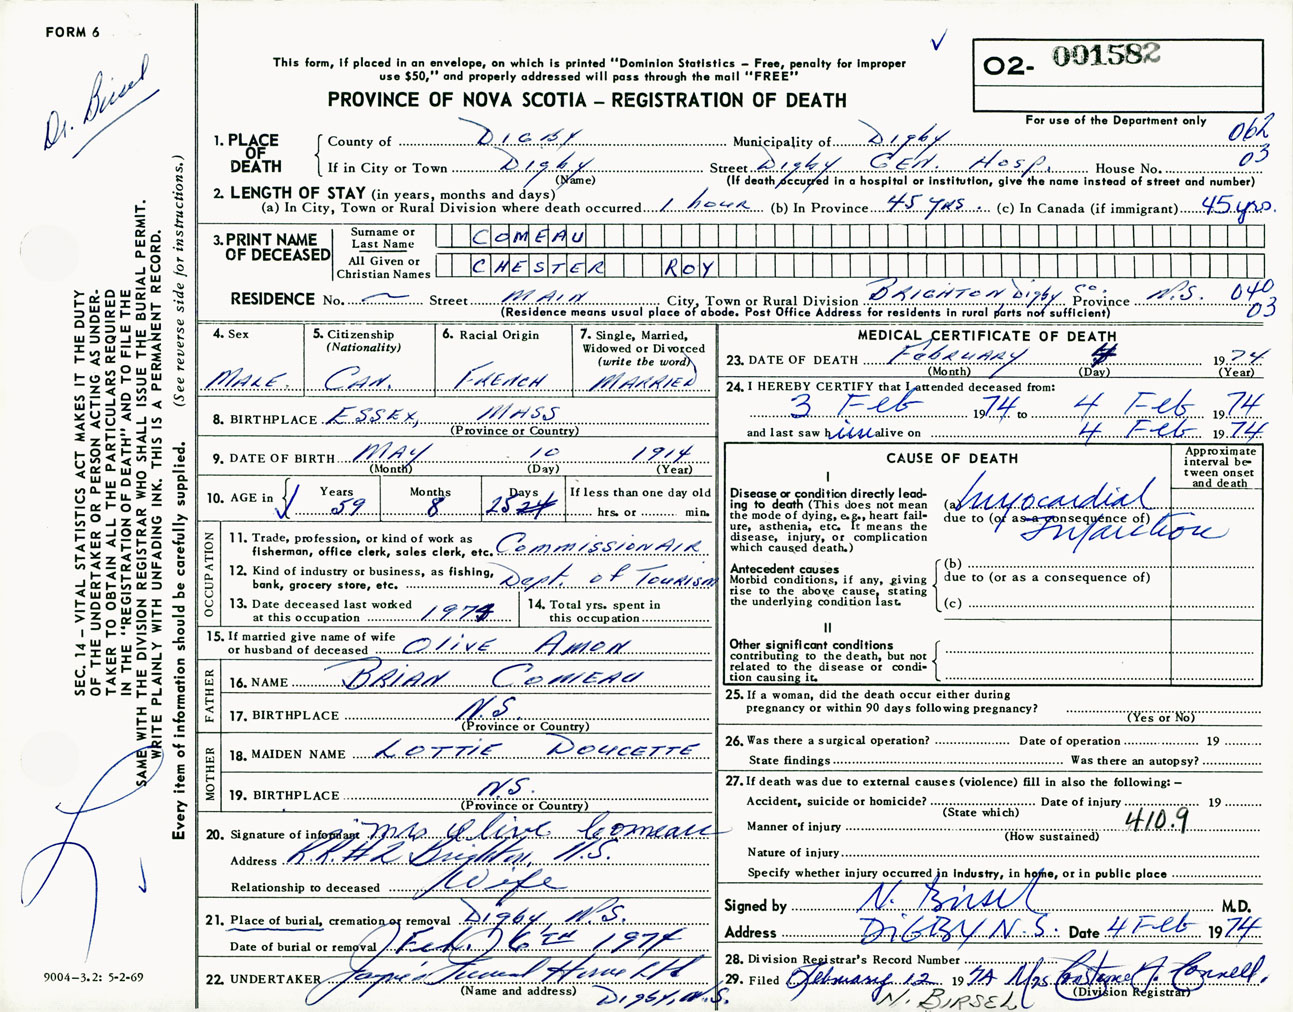 FORM 6
Dr. Birsel
This form, if placed in an envelope, on which is printed "Dominion Statistics – Free, penalty for improper
use $50," and properly addressed will pass through the mail "FREE"
PROVINCE OF NOVA SCOTIA – REGISTRATION OF DEATH
O2- 001582
For use of the Department only
062
03
1. PLACE OF DEATH County of DIGBY Municipality of Digby
If in City or Town Digby Street Digby GEN. Hosp. House No.
(Name) (If death occurred in a hospital or institution, give the name instead of street and number)
2. LENGTH OF STAY (in years, months and days)
(a) In City, Town or Rural Division where death occurred 1 hour (b) In Province 45 yrs. (c) In Canada (if immigrant) 45 yrs.
3. PRINT NAME OF DECEASED
Surname or Last Name COMEAU
All Given or Christian Names CHESTER ROY
RESIDENCE No. Street MAIN City, Town or Rural Division BRIGHTON Digby Co. Province N.S. 040
(Residence means usual place of abode. Post Office Address for residents in rural parts not sufficient) 03
4. Sex MALE.
5. Citizenship (Nationality) CAN.
6. Racial Origin FRENCH
7. Single, Married, Widowed or Divorced (write the word) MARRIED
8. BIRTHPLACE ESSEX, MASS
(Province or Country)
9. DATE OF BIRTH MAY 10 1914
(Month) (Day) (Year)
10. AGE in Years 59 Months 8 Days 25 24 If less than one day old
hrs. or min.
OCCUPATION
11. Trade, profession, or kind of work as
fisherman, office clerk, sales clerk, etc. COMMISSIONAIR
12. Kind of industry or business, as fishing,
bank, grocery store, etc. Dept. of Tourism
13. Date deceased last worked
at this occupation 1974
14. Total yrs. spent in
this occupation
15. If married give name of wife
or husband of deceased OLIVE AMON
FATHER
16. NAME BRIAN COMEAU
17. BIRTHPLACE N.S.
(Province or Country)
MOTHER
18. MAIDEN NAME LOTTIE DOUCETTE
19. BIRTHPLACE N.S.
(Province or Country)
20. Signature of informant Mrs Olive Comeau
Address R.R.#2 Brighton, N.S.
Relationship to deceased Wife
21. Place of burial, cremation or removal Digby N.S.
Date of burial or removal Feb. 6TH 1974
22. UNDERTAKER Funeral Home Ltd
(Name and address) DIGBY, N.S.
MEDICAL CERTIFICATE OF DEATH
23. DATE OF DEATH FEBRUARY 4 1974
(Month) (Day) (Year)
24. I HEREBY CERTIFY that I attended deceased from:
3 Feb 1974 to 4 Feb 1974
and last saw him alive on 4 Feb 1974
CAUSE OF DEATH
Approximate interval between onset and death
I
Disease or condition directly leading to death (This does not
mean the mode of dying, e.g., heart failure, asthenia, etc. It means the
disease, injury, or complication
which caused death.)
(a) Myocardial
due to (or as a consequence of)
Infarction
Antecedent causes
Morbid conditions, if any, giving
rise to the above cause, stating
the underlying condition last.
(b)
due to (or as a consequence of)
(c)
II
Other significant conditions
contributing to the death, but not
related to the disease or condition causing it.
25. If a woman, did the death occur either during
pregnancy or within 90 days following pregnancy?
(Yes or No)
26. Was there a surgical operation? Date of operation 19
State findings Was there an autopsy?
27. If death was due to external causes (violence) fill in also the following: –
Accident, suicide or homicide? Date of injury 19
(State which)
Manner of injury 410.9
(How sustained)
Nature of injury
Specify whether injury occurred in Industry, in home, or in public place
Signed by N. Birsel M.D.
Address DIGBY N.S. Date 4 Feb 1974
28. Division Registrar's Record Number
29. Filed February 12 1974 Mrs Constance A. Connell.
(Division Registrar)
N. BIRSEL
SEC. 14 – VITAL STATISTICS ACT MAKES IT THE DUTY
OF THE UNDERTAKER OR PERSON ACTING AS UNDER-
TAKER TO OBTAIN ALL THE PARTICULARS REQUIRED
IN THE "REGISTRATION OF DEATH" AND TO FILE THE
SAME WITH THE DIVISION REGISTRAR WHO SHALL ISSUE THE BURIAL PERMIT.
WRITE PLAINLY WITH UNFADING INK. THIS IS A PERMANENT RECORD.
Every item of information should be carefully supplied. (See reverse side for instructions.)
9004–3.2: 5-2-69